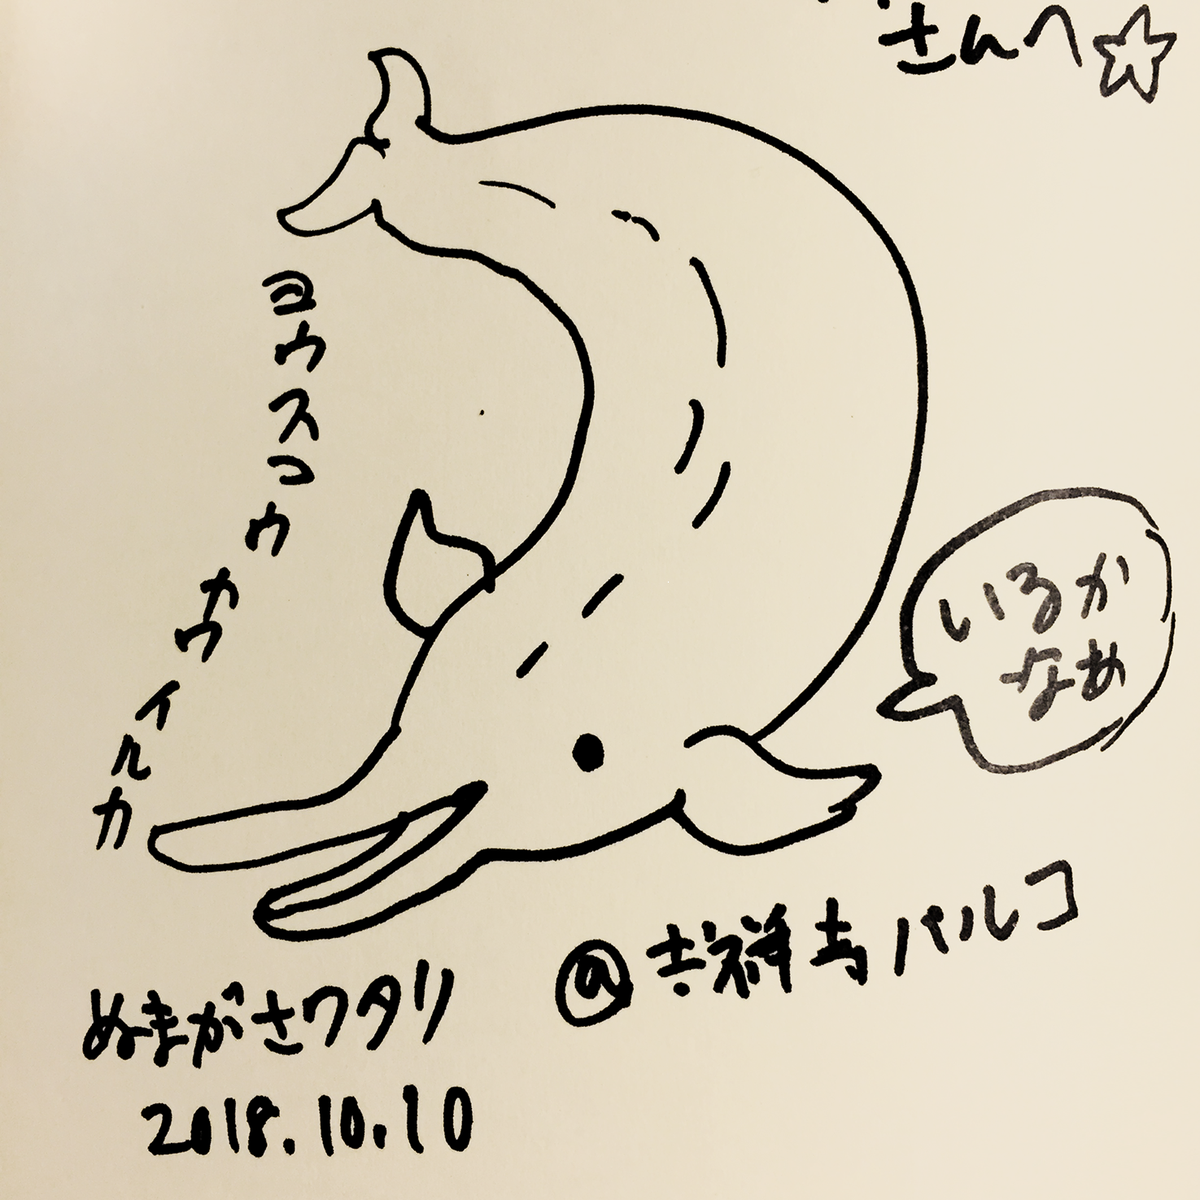 さんへ☆
ヨウスコウカワイルカ
いるか
なめ
@吉祥寺パルコ
ぬまがさワタリ
2018.10.10